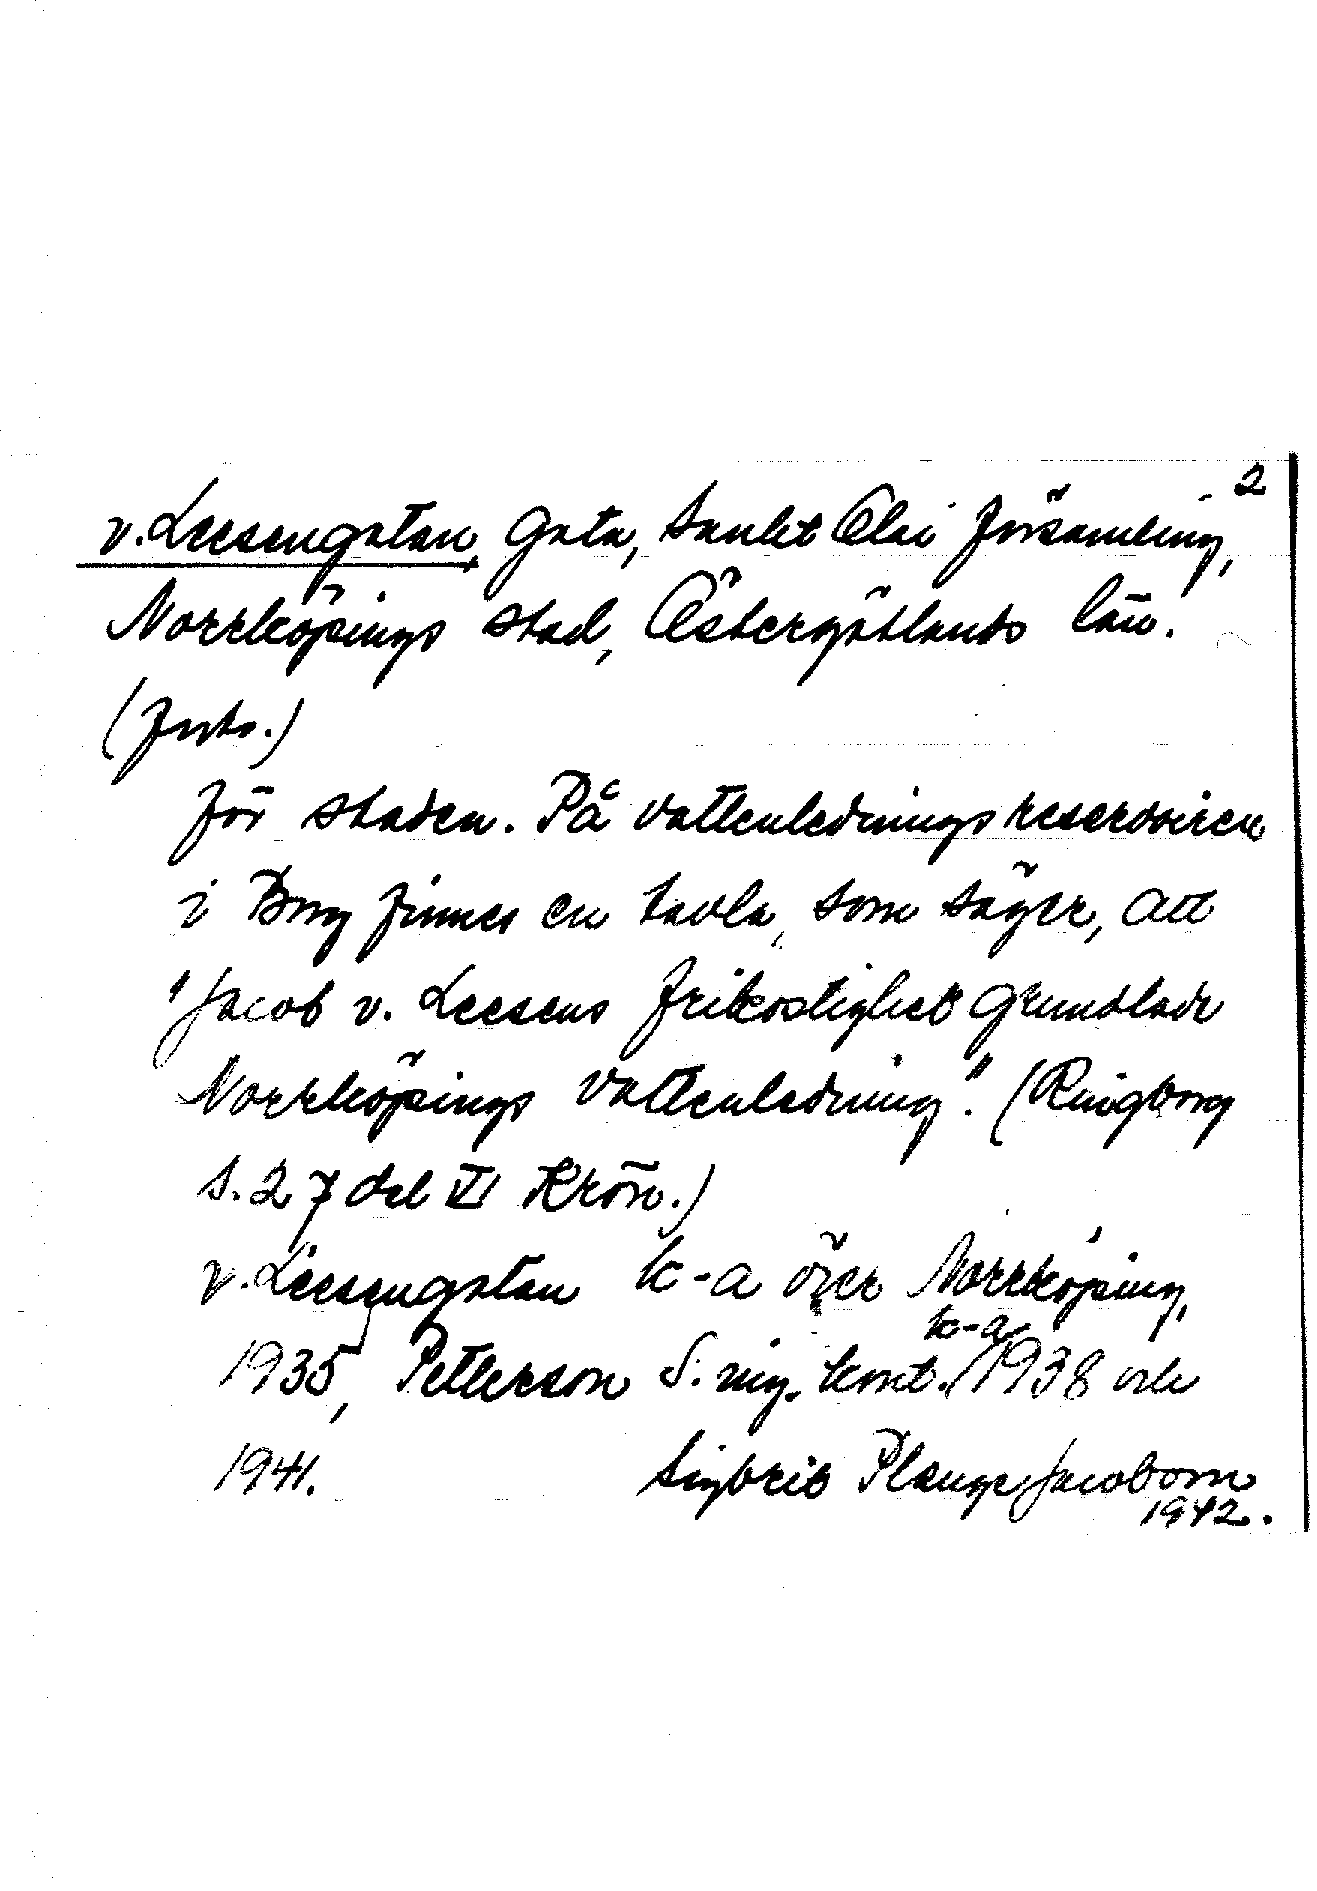 2
v. Leesengatan, Gata, Sankt Olai församling,
Norrköpings stad, Östergötlands län.
(forts.)
för staden. På vattenledningsreservoiren
i Borg finnes en tavla, som säger, att
"Jacob v. Leesens frikostighet grundlade
Norrköpings vattenledning". (Ringborg
s. 27 del VI Krön.)
v. Leesengatan k-a över Norrköping,
1935, Petterson S. ing. kont. k-a 1938 och
1941. Sigbrit Plænge Jacobson
1942.